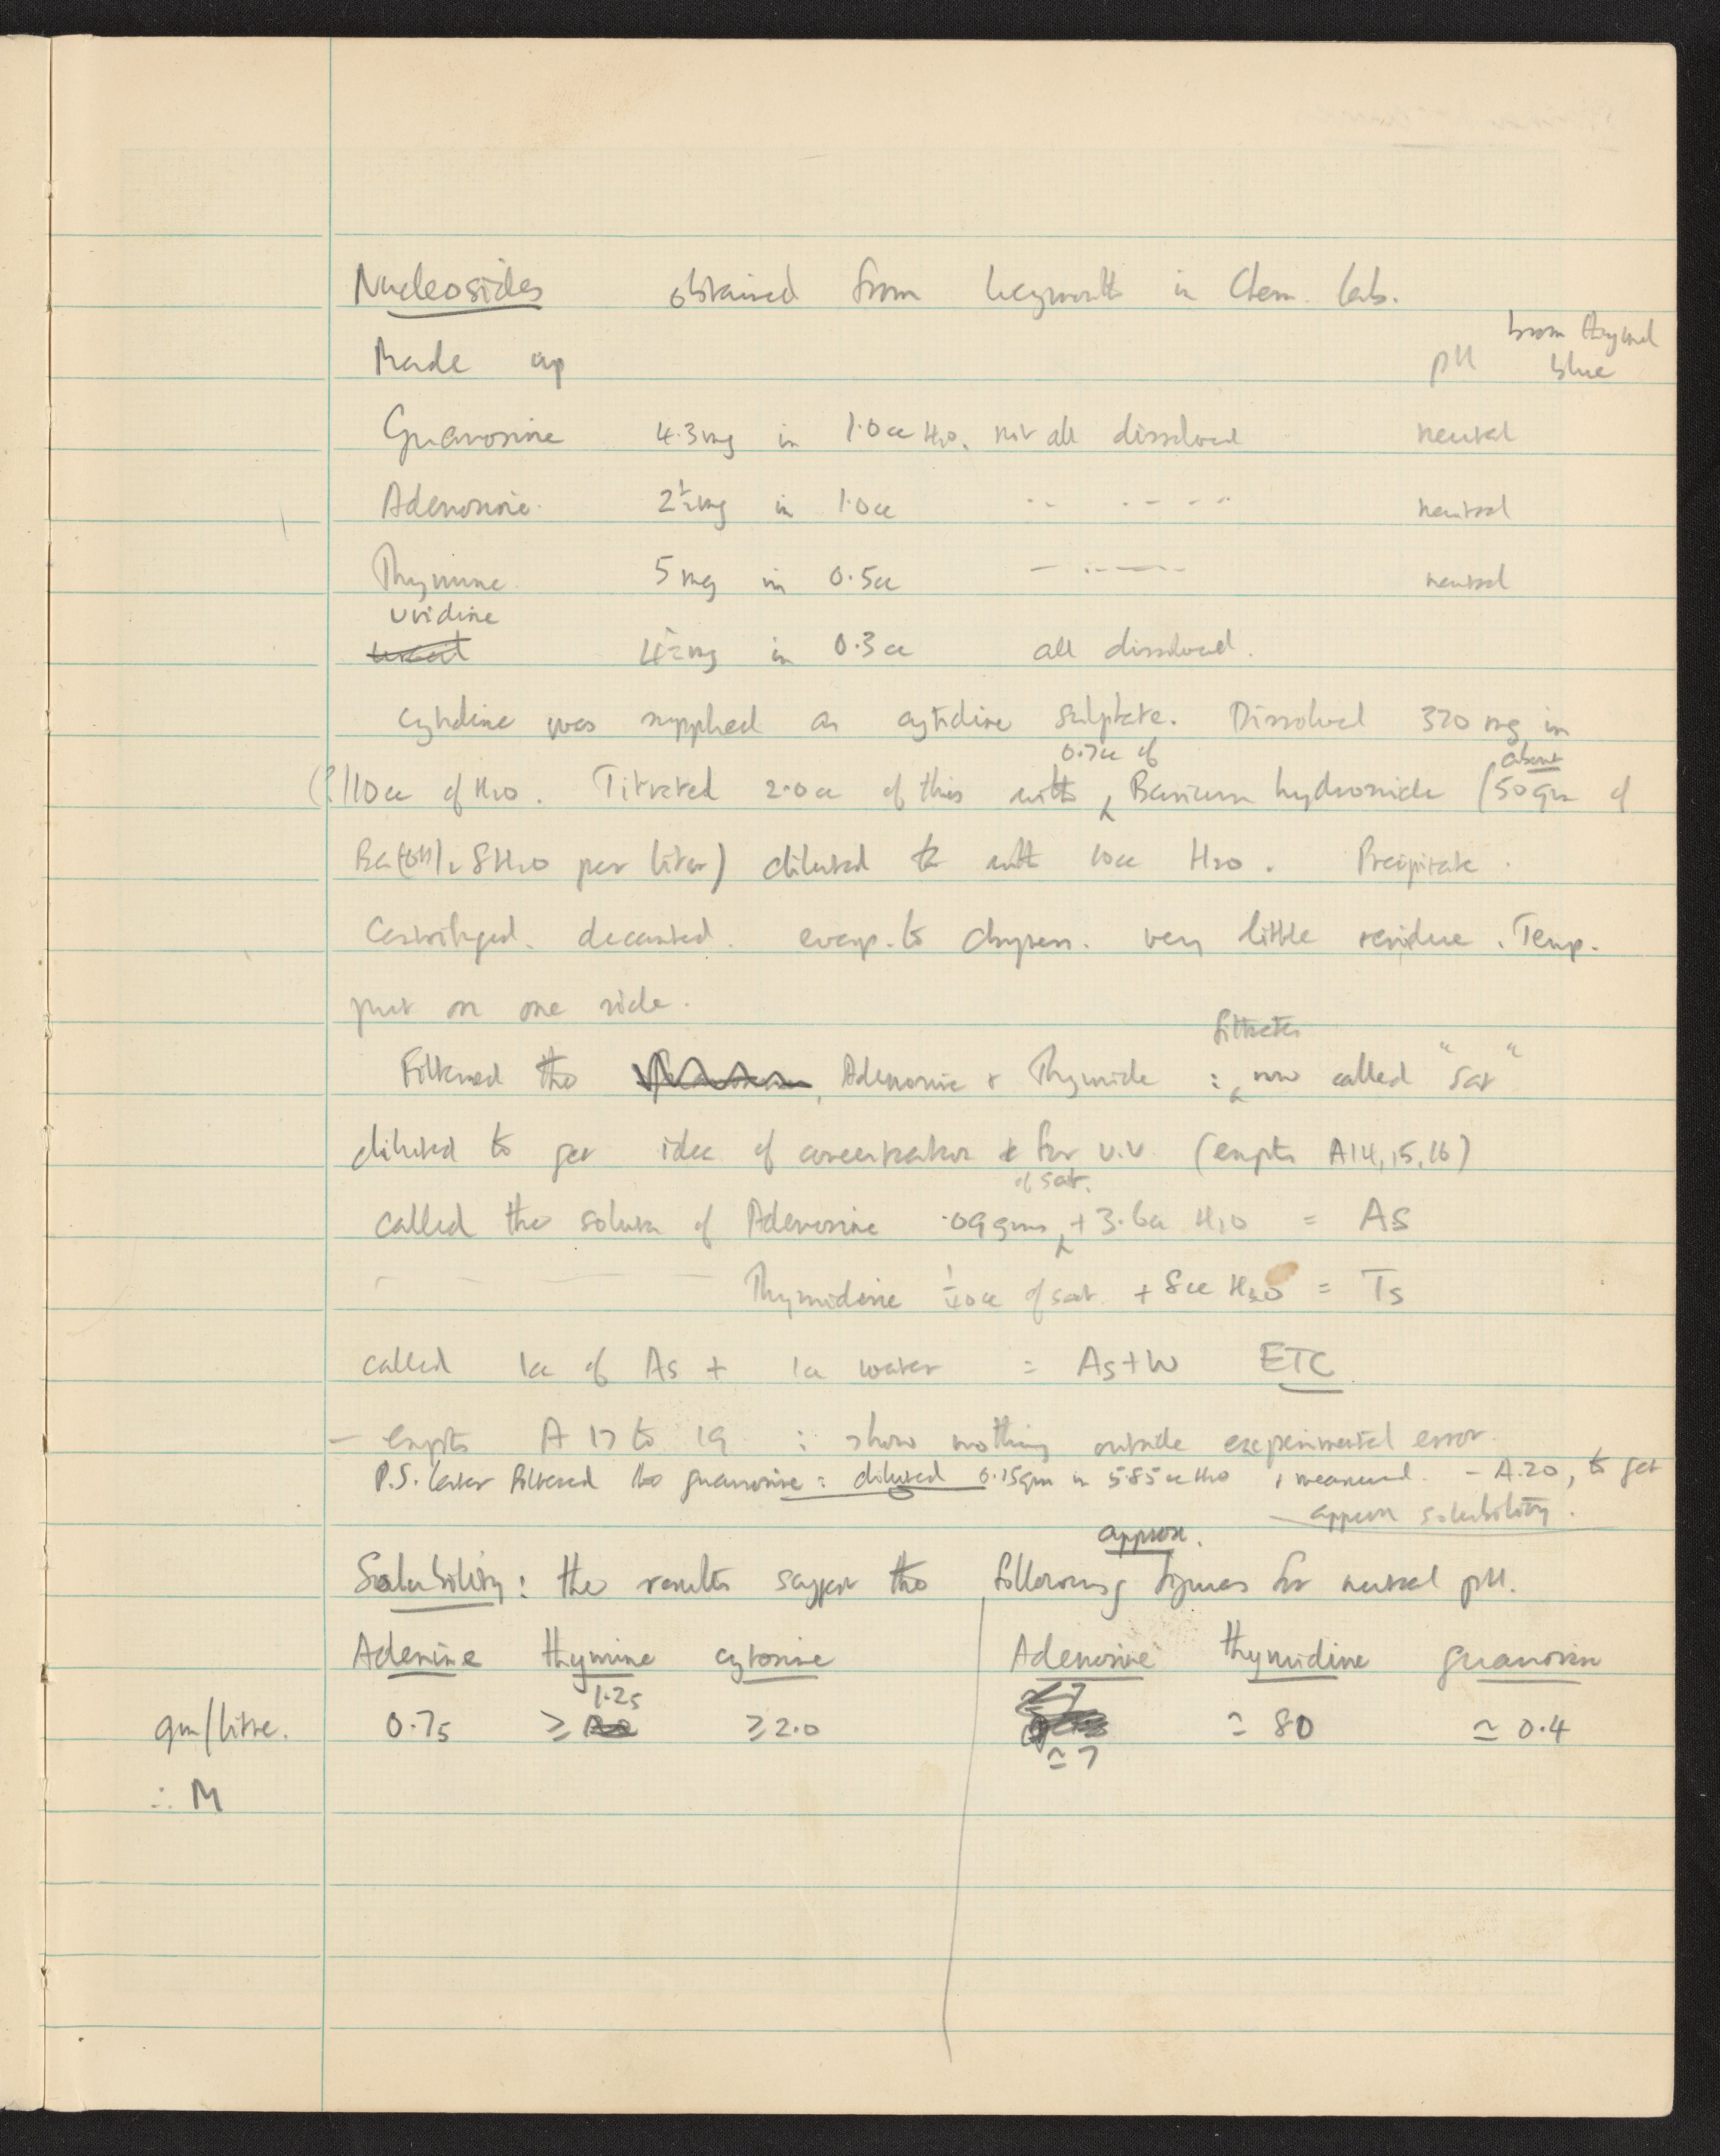 Nucleosides obtained from in Chem. Lab.
Made up pH brom thymol blue
Guanosine 4.3 mg in 1.0cc H2O. not all dissolved neutral
Adenosine. 2½mg in 1.0cc -- ---- neutral
Thymine. 5 mg in 0.5cc - ---- neutral
Uridine
4½mg in 0.3cc all dissolved.
Cytidine was supplied as cytidine sulphate. Dissolved 320 mg in
(?) 10cc of H2O. Titrated 2.0cc of this with 0.7cc of Barium hydroxide (about 50gm of
Ba(OH)2 8H2O per liter) diluted to with 10cc H2O. Precipitate.
Centrifuged. decanted. evap. to dryness. very little residue. Temp.
put on one side.
Filtered the Adenosine & Thymide : filtrates now called "Sat"
diluted to get idea of concentration & for U.V. (expts A14, 15, 16)
called the solution of Adenosine .09gms of sat. + 3.6cc H2O = As
- - - - Thymidine 1/40cc of sat. + 8cc H2O = Ts
called 1cc of As + 1cc water = As+W ETC
- expts A 17 to 19 : show nothing outside experimental error.
P.S. later filtered the guanosine : diluted 0.15gm in 5.85cc H2O & measured. - A.20, to get
approx solubility.
Solubility: the results suggest the following approx. figures for neutral pH.
Adenine thymine cytosine Adenosine thymidine guanosine
gm/litre. 0.75 ≥ 1.25 ≥2.0 ≃7 ≃ 80 ≃ 0.4
∴ M